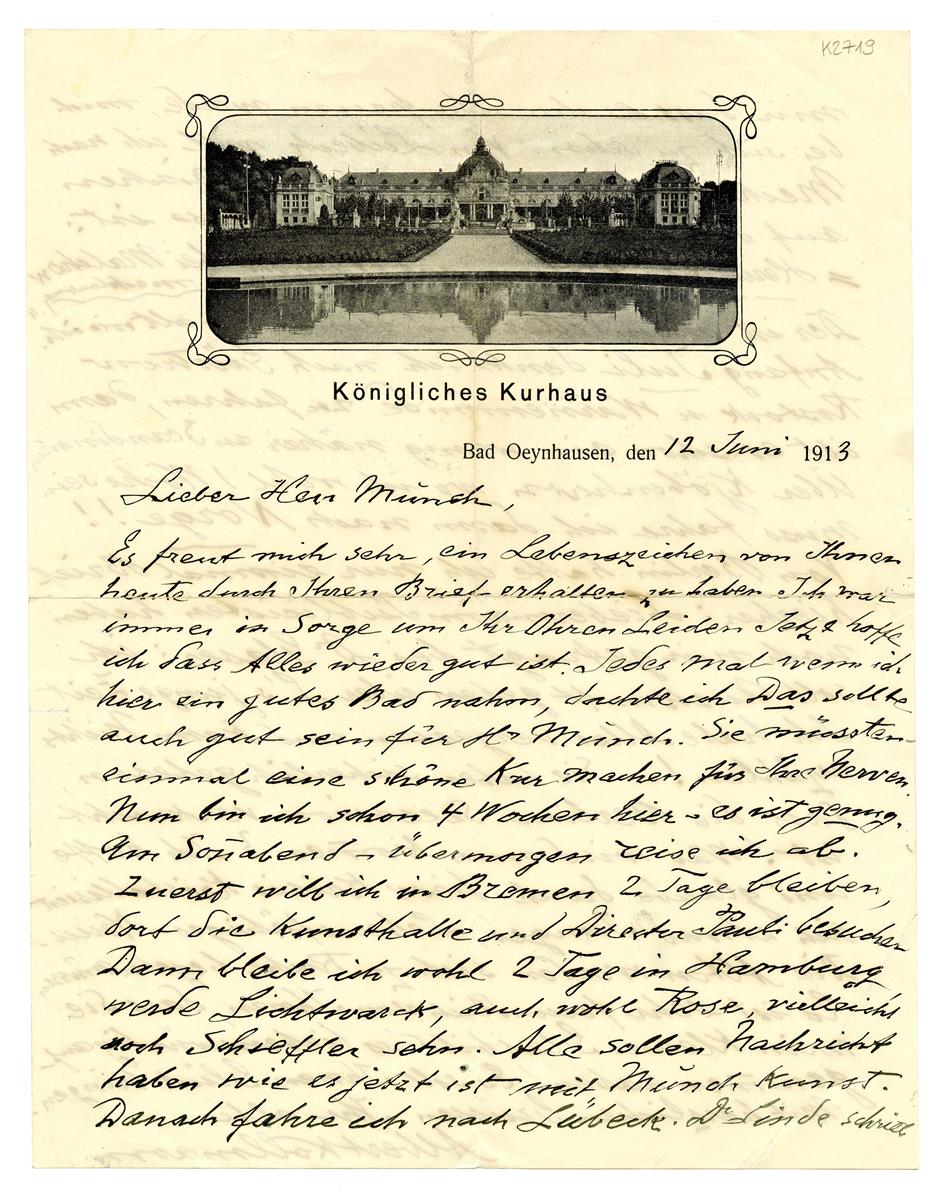 K2719
Königliches Kurhaus
Bad Oeynhausen, den 12 Juni 1913
Lieber Herr Munch,
Es freut mich sehr, ein Lebenszeichen von Ihnen
heute durch Ihren Brief erhalten zu haben Ich war
immer in Sorge um Ihr Ohren Leiden Jetzt hoffe
ich dass Alles wieder gut ist. Jedes mal wenn ich
hier ein gutes Bad nahm, dachte ich Das sollte
auch gut sein für Hr Munch. Sie müssten
einmal eine schöne Kur machen für Ihre Nerven.
Nun bin ich schon 4 Wochen hier – es ist genug.
Am Soñabend – übermorgen reise ich ab.
Zuerst will ich in Bremen 2 Tage bleiben,
dort die Kunsthalle und Director Pauli besuchen
Dann bleibe ich wohl 2 Tage in Hamburg,
werde Lichtwarck, auch wohl Rose, vielleicht
noch Schieffler sehn. Alle sollen Nachricht
haben wie es jetzt ist mit Munch Kunst.
Danach fahre ich nach Lübeck. Dr Linde schrieb